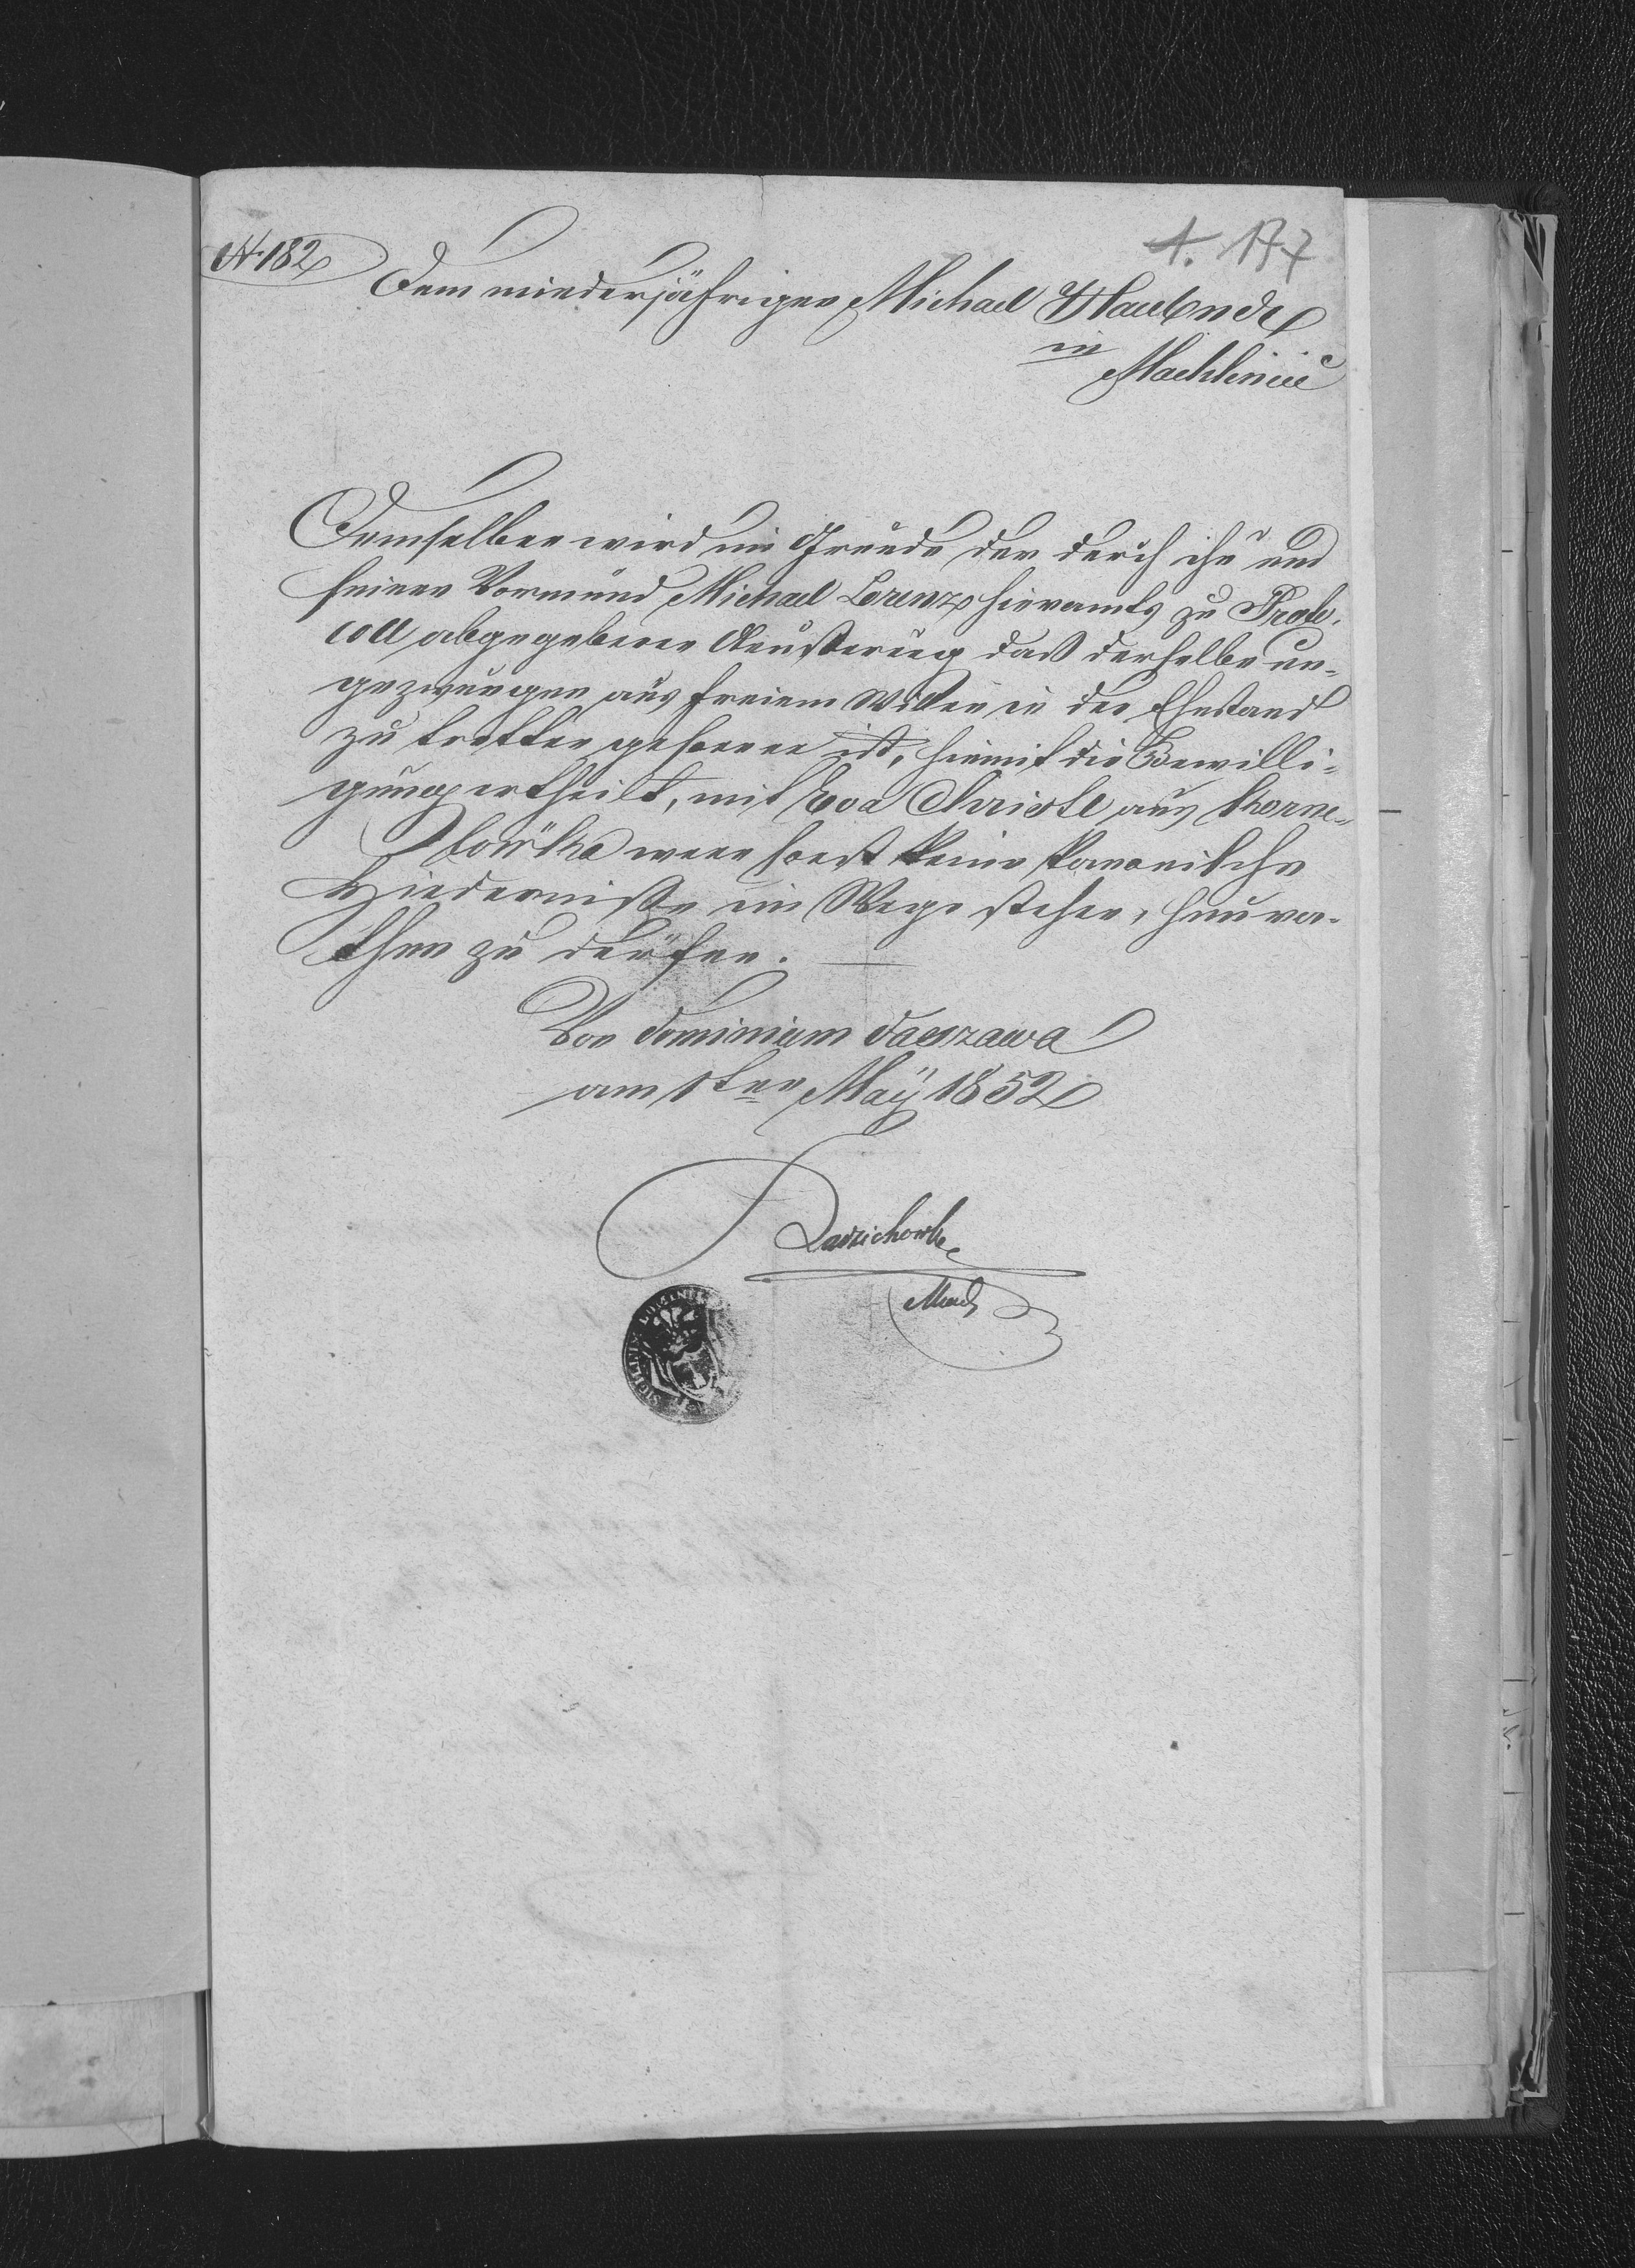 N. 182
1. 177
Dem minderjährigen Michael Haubnde
in
Machliniec
Demselben wird im Grunde der durch ihn und
seinen Vormund Michael Lorenz hieramts zu Proto-
coll abgegebenen Aeußerung daß derselbe un-
gezwungen aus freiem Willen in den Ehestand
zu tretten gesonnen ist, hiemit die Bewilli-
gung ertheilt, mit Eva Christl aus Korne-
lowka wenn sonst keine kanonische
Hindernisse im Wege stehen, heura-
then zu dürfen.
Von Dominium Daszawa
am 1ten May 1852
Mand
SIGILLUM DOMINII